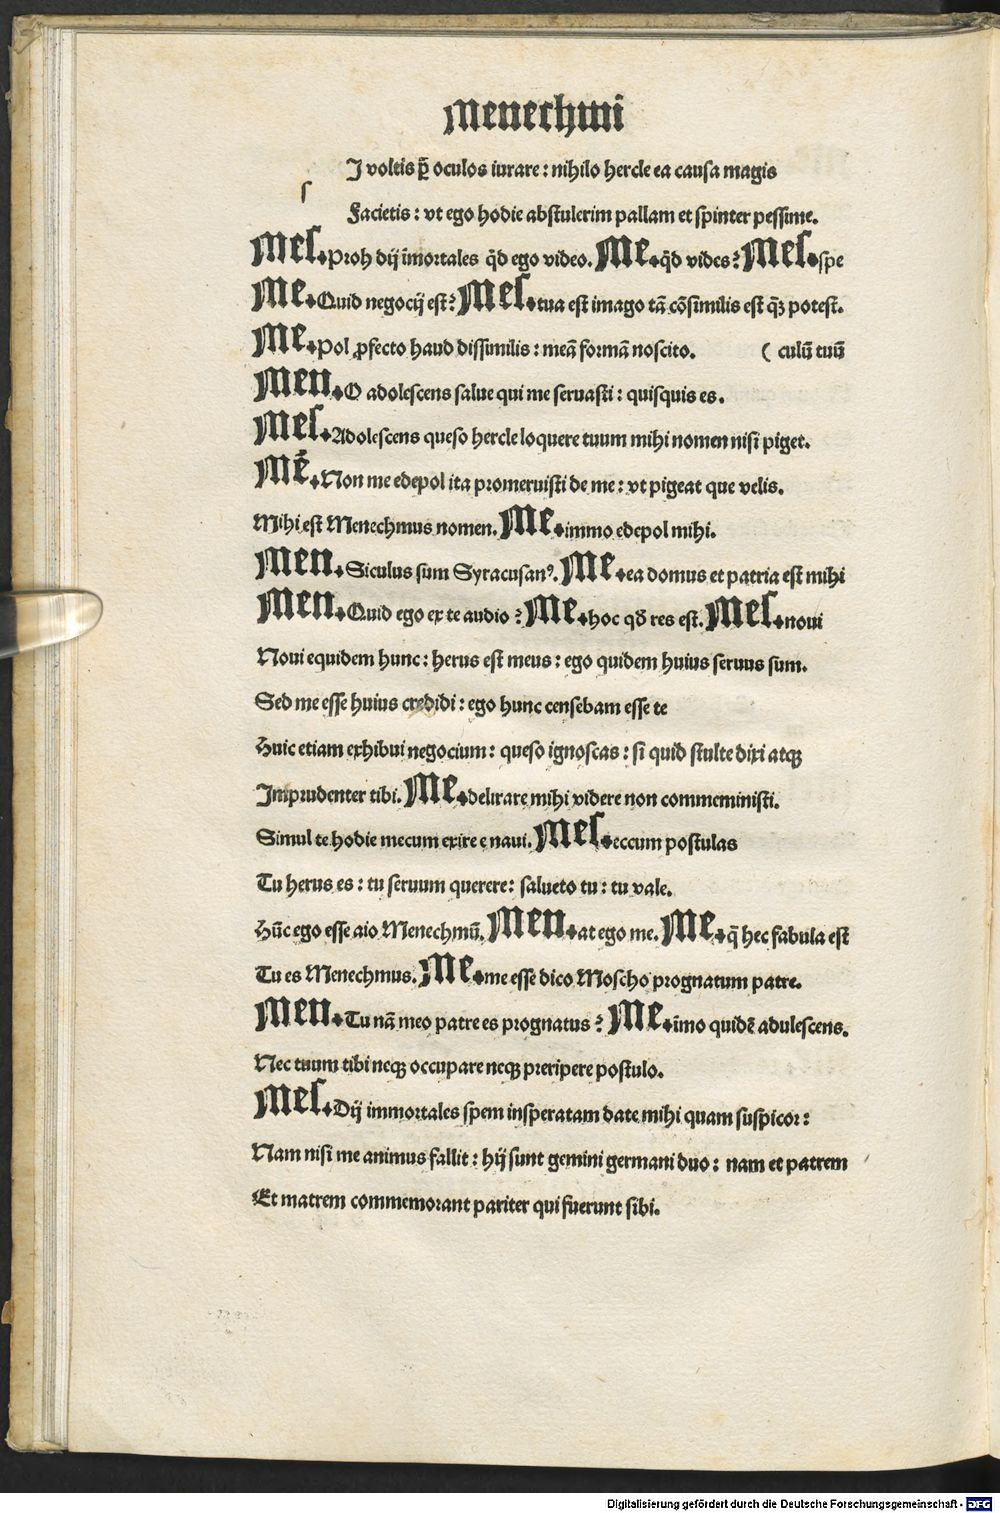 Menechmi
I voltis p̄ oculos iurare : nihilo hercle ea causa magis
s
Facietis : vt ego hodie abstulerim pallam et spinter pessime.
Mes. Proh dij īmortales q̄d ego video. Me. q̄d vides? Mes. spe
Me. Quid negocij est? Mes. tua est imago tā cōsimilis est q̄ꝫ potest.
Me. Pol ꝓfecto haud dissimilis : meā formā noscito. ( culū tuū
Men. O adolescens salue qui me seruasti : quisquis es.
Mes. Adolescens queso hercle loquere tuum mihi nomen nisi piget.
Mē. Non me edepol ita promeruisti de me : vt pigeat que velis.
Mihi est Menechmus nomen. Me. immo edepol mihi.
Men. Siculus sum Syracusanꝰ. Me. ea domus et patria est mihi
Men. Quid ego ex te audio ? Me. hoc qđ res est. Mes. noui
Noui equidem hunc : herus est meus : ego quidem huius seruus sum.
Sed me esse huius credidi : ego hunc censebam esse te
Huic etiam exhibui negocium : queso ignoscas : si quid stulte dixi atqꝫ
Imprudenter tibi. Me. delirare mihi videre non commeministi.
Simul te hodie mecum exire e naui. Mes. eccum postulas
Tu herus es : tu seruum querere : salueto tu : tu vale.
Hūc ego esse aio Menechmū. Men. at ego me. Me. q̄ hec fabula est
Tu es Menechmus. Me. me esse dico Moscho prognatum patre.
Men. Tu nā meo patre es prognatus ? Me. īmo quidē adulescens.
Nec tuum tibi neqꝫ occupare neqꝫ preripere postulo.
Mes. Dij immortales spem insperatam date mihi quam suspicor :
Nam nisi me animus fallit : hij sunt gemini germani duo : nam et patrem
Et matrem commemorant pariter qui fuerunt sibi.
Digitalisierung gefördert durch die Deutsche Forschungsgemeinschaft - DFG